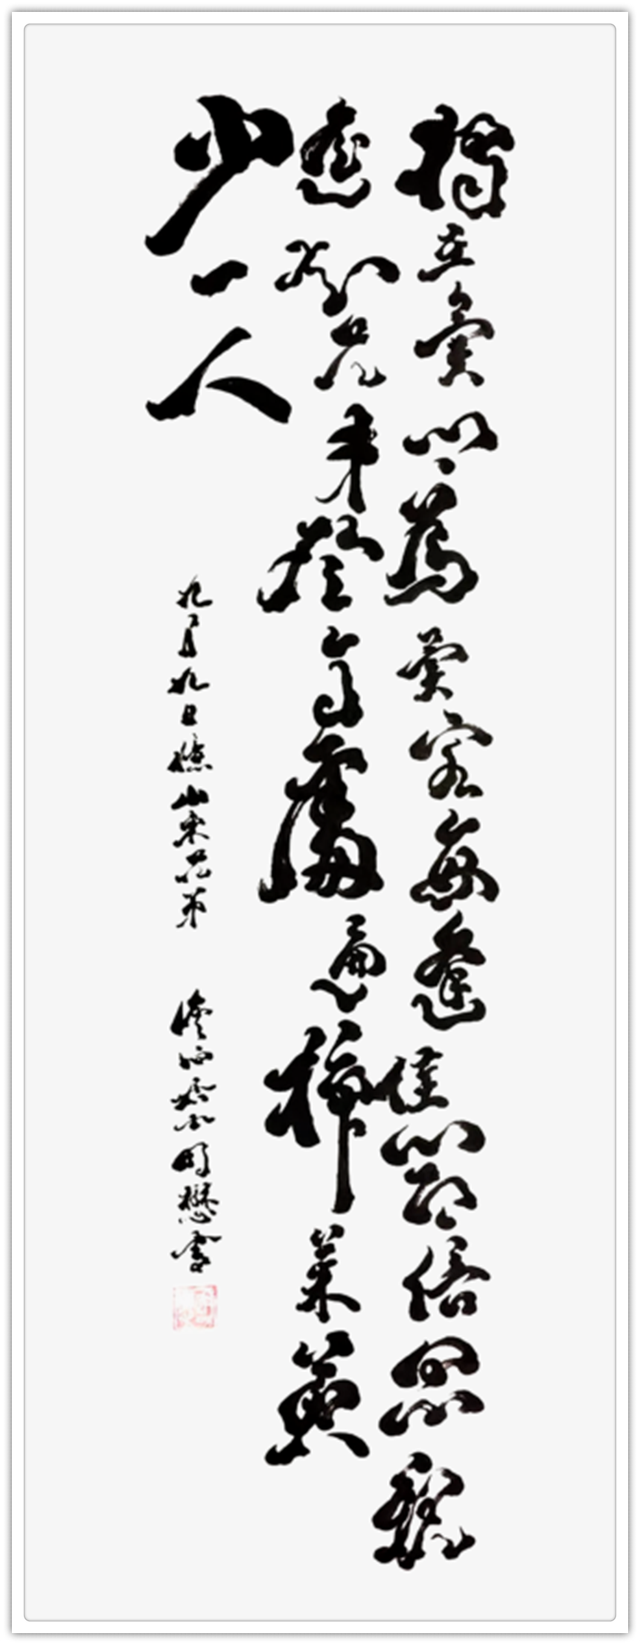 獨在異鄉為異客每逢佳節倍思親
遙知兄弟登高處遍插茱萸
少一人
九月九日憶山東兄弟